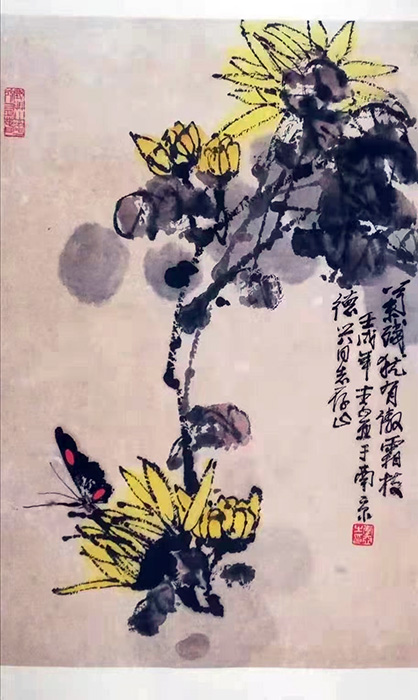 菊残犹有傲霜枝
壬戌年李亚于南京
德兴同志存正